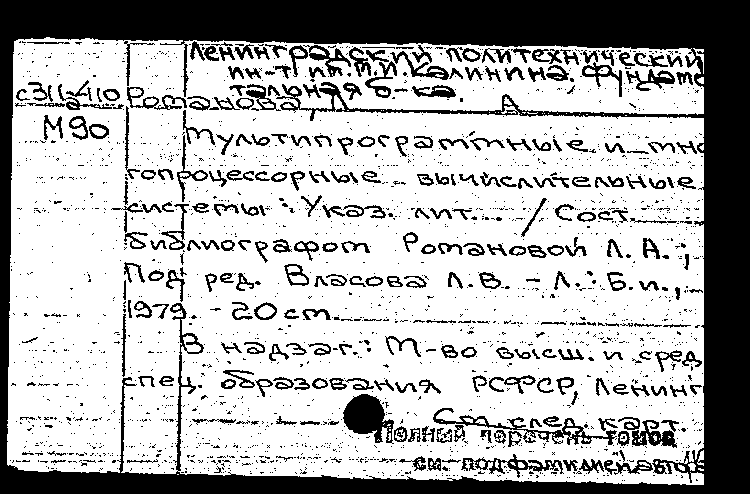 Ленинградский политехнический
ин-т им. М.И. Калинина. Фундаме
тальная б-ка.
с311-410 Романова, Л А
М90
Мультипрограммные и мно
гопроцессорные вычислительные
системы: Указ. лит... / Сост.
библиографом Романовой Л. А.;
Под ред. Власова Л.В. - Л.: Б.и.,
1979. - 20 см.
В надзаг.: М-во высш. и сред
спец. образования РСФСР, Ленинг
См. след. карт.
Полный перечень томов
см. под фамилией автора